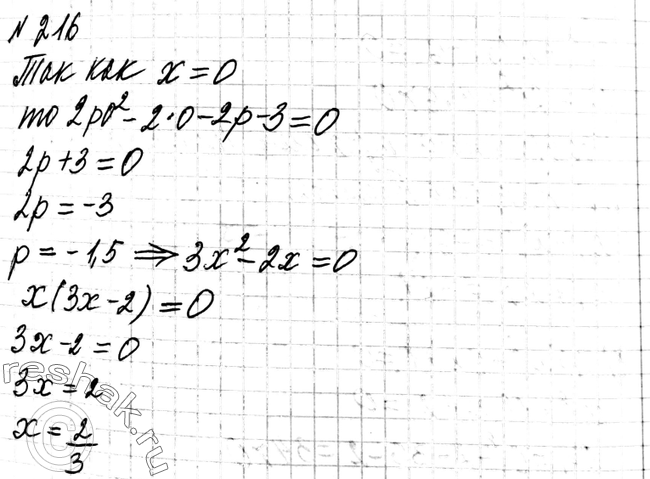 № 216
Так как x=0
то 2p0²-2·0-2p-3=0
2p+3=0
2p=-3
p=-1,5 ⇒ 3x²-2x=0
x(3x-2)=0
3x-2=0
3x=2
x=2/3
reshak.ru